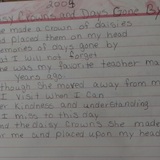 2004
Daisy Crowns and Days Gone By
She made a crown of daisies
and placed them on my head
memories of days gone by
that I will not forget.
She was my favorite teacher many
years ago.
although she moved away from me
I visit when I can
her kindness and understanding
I miss to this day.
the daisy crowns she made
me and placed upon my head